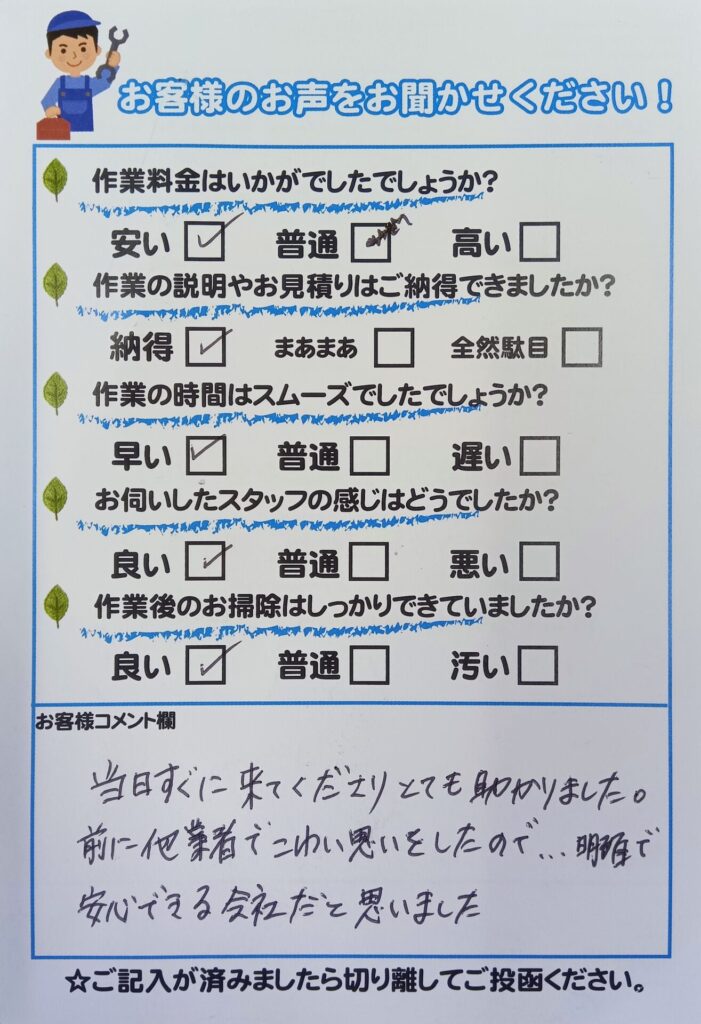 お客様のお声をお聞かせください！
作業料金はいかがでしたでしょうか？
安い 普通 高い
作業の説明やお見積りはご納得できましたか？
納得 まあまあ 全然駄目
作業の時間はスムーズでしたでしょうか？
早い 普通 遅い
お伺いしたスタッフの感じはどうでしたか？
良い 普通 悪い
作業後のお掃除はしっかりできていましたか？
良い 普通 汚い
お客様コメント欄
当日すぐに来てくださりとても助かりました。
前に他業者でこわい思いをしたので…明確で
安心できる会社だと思いました
☆ご記入が済みましたら切り離してご投函ください。